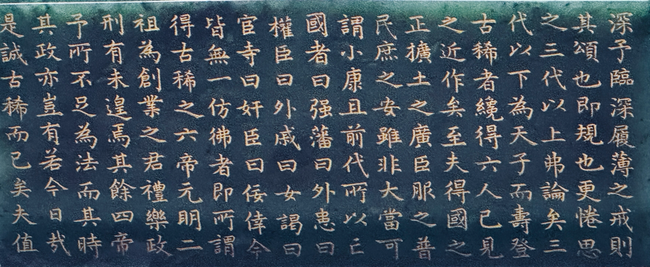 深予臨深履薄之戒則
其頌也即規也更惓思
之三代以上弗論矣三
代以下為天子而壽登
古稀者纔得六人已見
之近作矣至夫得國之
正擴土之廣臣服之普
民庶之安雖非大當可
謂小康且前代所以亡
國者曰强藩曰外患曰
權臣曰外戚曰女謁曰
宦寺曰奸臣曰佞倖今
皆無一仿彿者即所謂
得古稀之六帝元明二
祖為創業之君禮樂政
刑有未遑焉其餘四帝
予所不足為法而其時
其政亦豈有若今日哉
是誠古稀而已矣夫值